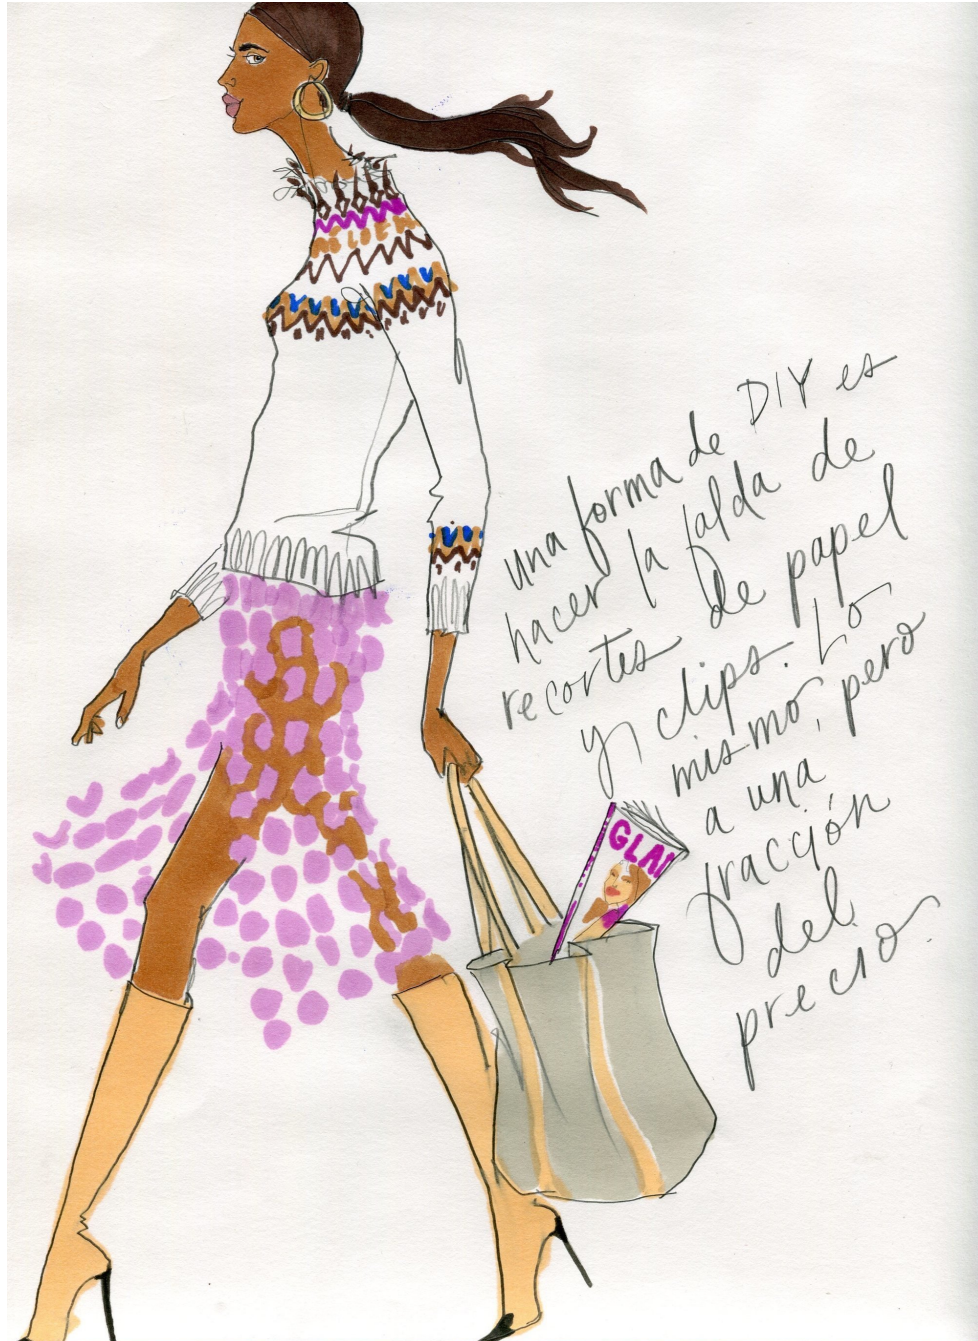 una forma de DIY es
hacer la falda de
recortes de papel
y clips. Lo
mismo, pero
a una
fracción
del
precio.
GLA